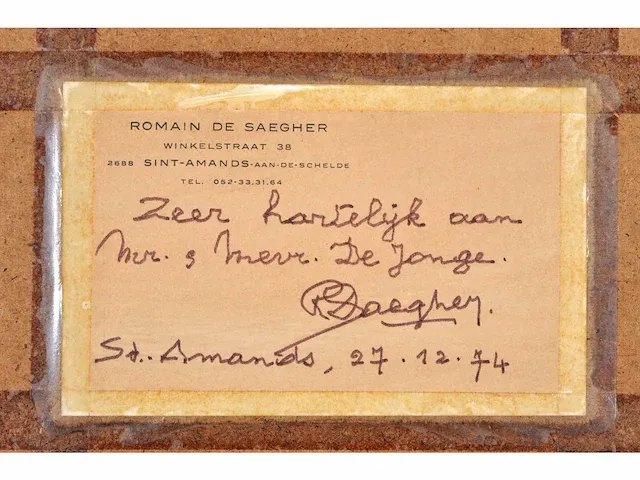 ROMAIN DE SAEGHER
WINKELSTRAAT 38
2688 SINT-AMANDS-AAN-DE-SCHELDE
TEL. 052-33.31.64
Zeer hartelijk aan
Mr. & Mevr. De Jonge.
RDSaegher.
St. Amands, 27.12.74